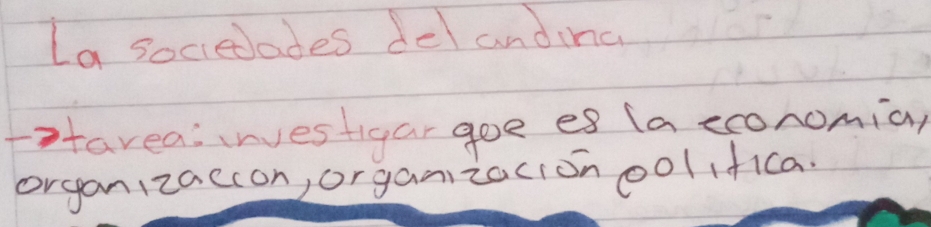 La sociedades del andina
→tarea: investigar qoe es la economia,
organizaccon, organización politica.